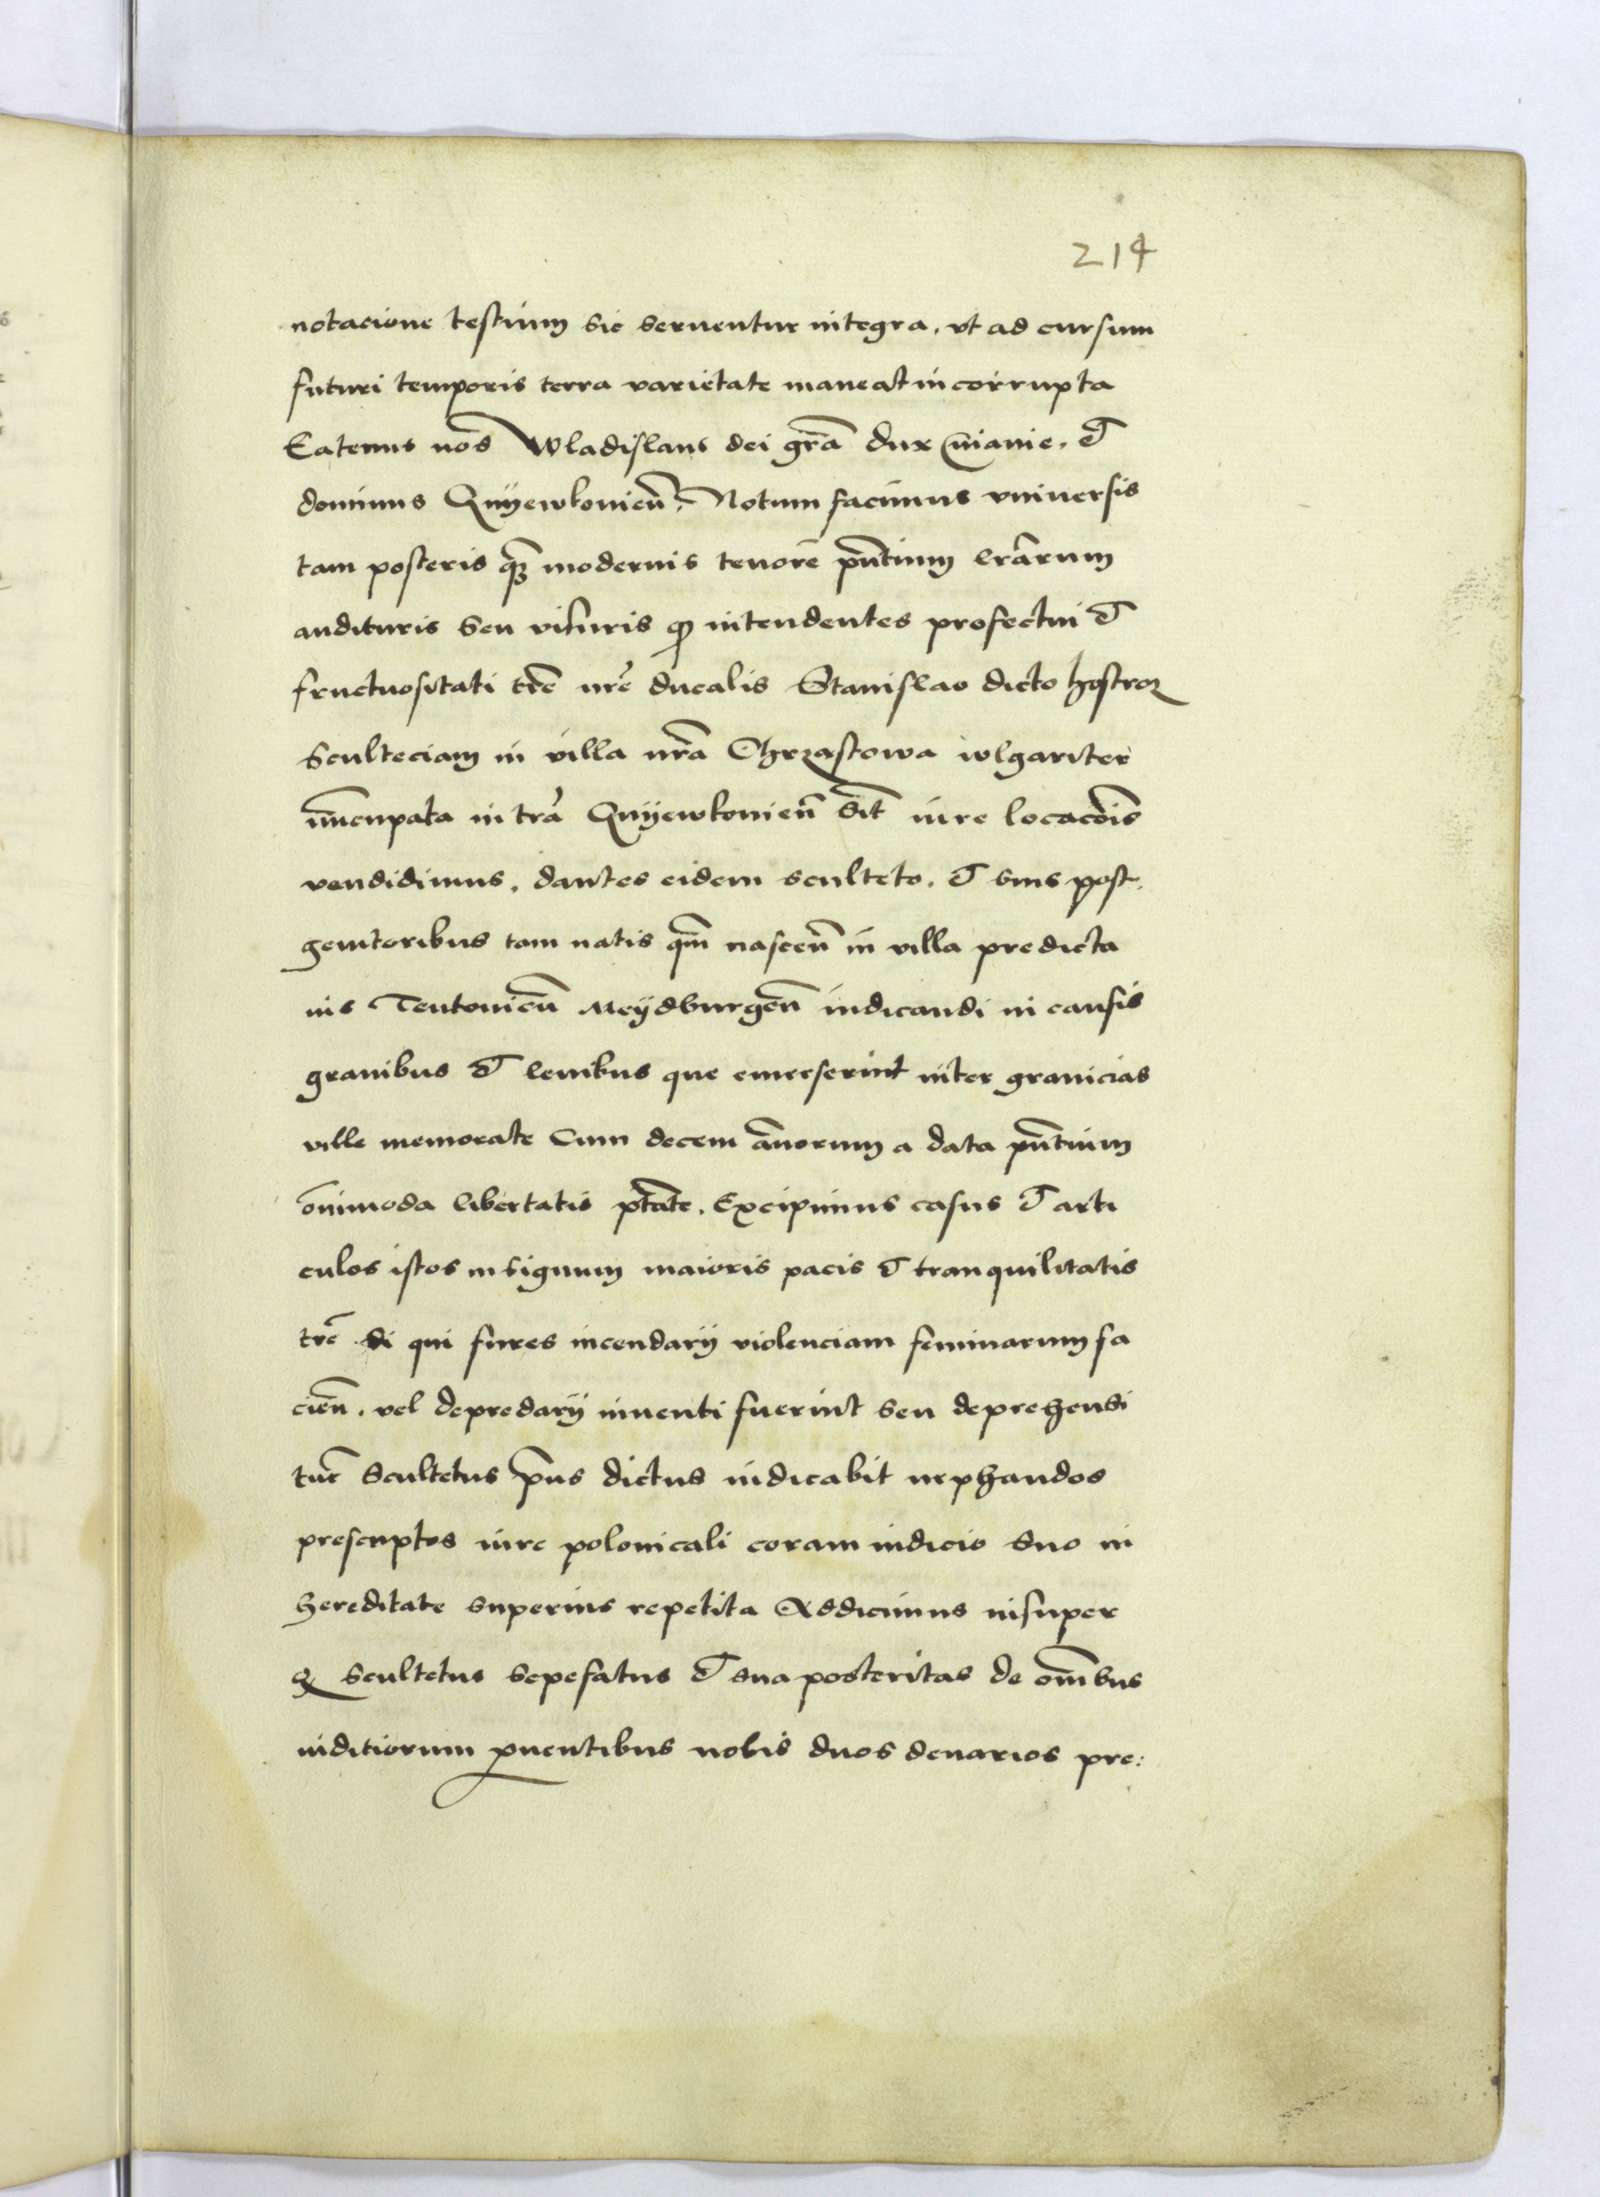 214
notacione testium sic seruentur integra, vt ad cursum
futuri temporis terra varietate maneat incorrupta
Eatenus nos Wladislaus dei gr̃a dux C̃uianie, et
dominus Gnyewkonien̄. Notum facimus vniuersis
tam posteris qm̃ modernis tenorẽ pñtium lrãrum
audituris seu visuris ꝙ intendentes profectui et
fructuositati trẽ nr̃e ducalis Stanislao dicto hostroz
sculteciam in villa nr̃a Chrzastowa wlgariter
nũcupata in tr̃a Gnyewkonien̄ iure locacõis
vendidimus, dantes eidem sculteto, et suis post-
genitoribus tam natis qm̃ nascen̄ in villa predicta
ius Teutonicũ Meydburgen̄ iudicandi in causis
grauibus et leuibus que emerserint inter granicias
ville memorate Cum decem ãnorum a data pñtium
om̃imoda libertatis ptãte. Excipimus casus et arti
culos istos in signum maioris pacis et tranquilitatis
trẽ si qui fures incendarij violenciam feminarum fa
cien̄, vel depredarij inuenti fuerint seu deprehensi
tũc Scultetus pñs dictus iudicabit nephandos
prescriptos iure polonicali coram iudicio suo in
hereditate superius repetita Addicimus insuper
ꝙ scultetus sepefatus et sua posteritas de om̃ibus
iuditiorum ꝓuentibus nobis duos denarios pre: